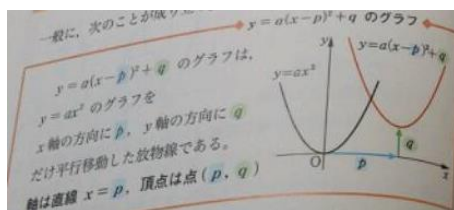 一般に，次のことが成り立
y=a(x-p)²+q のグラフ
y=a(x-p)²+q のグラフは，
y=ax² のグラフを
x軸の方向に p，y軸の方向に q
だけ平行移動した放物線である。
軸は直線 x=p，頂点は点(p, q)
y
y=a(x-p)²+q
y=ax²
q
O
p
x